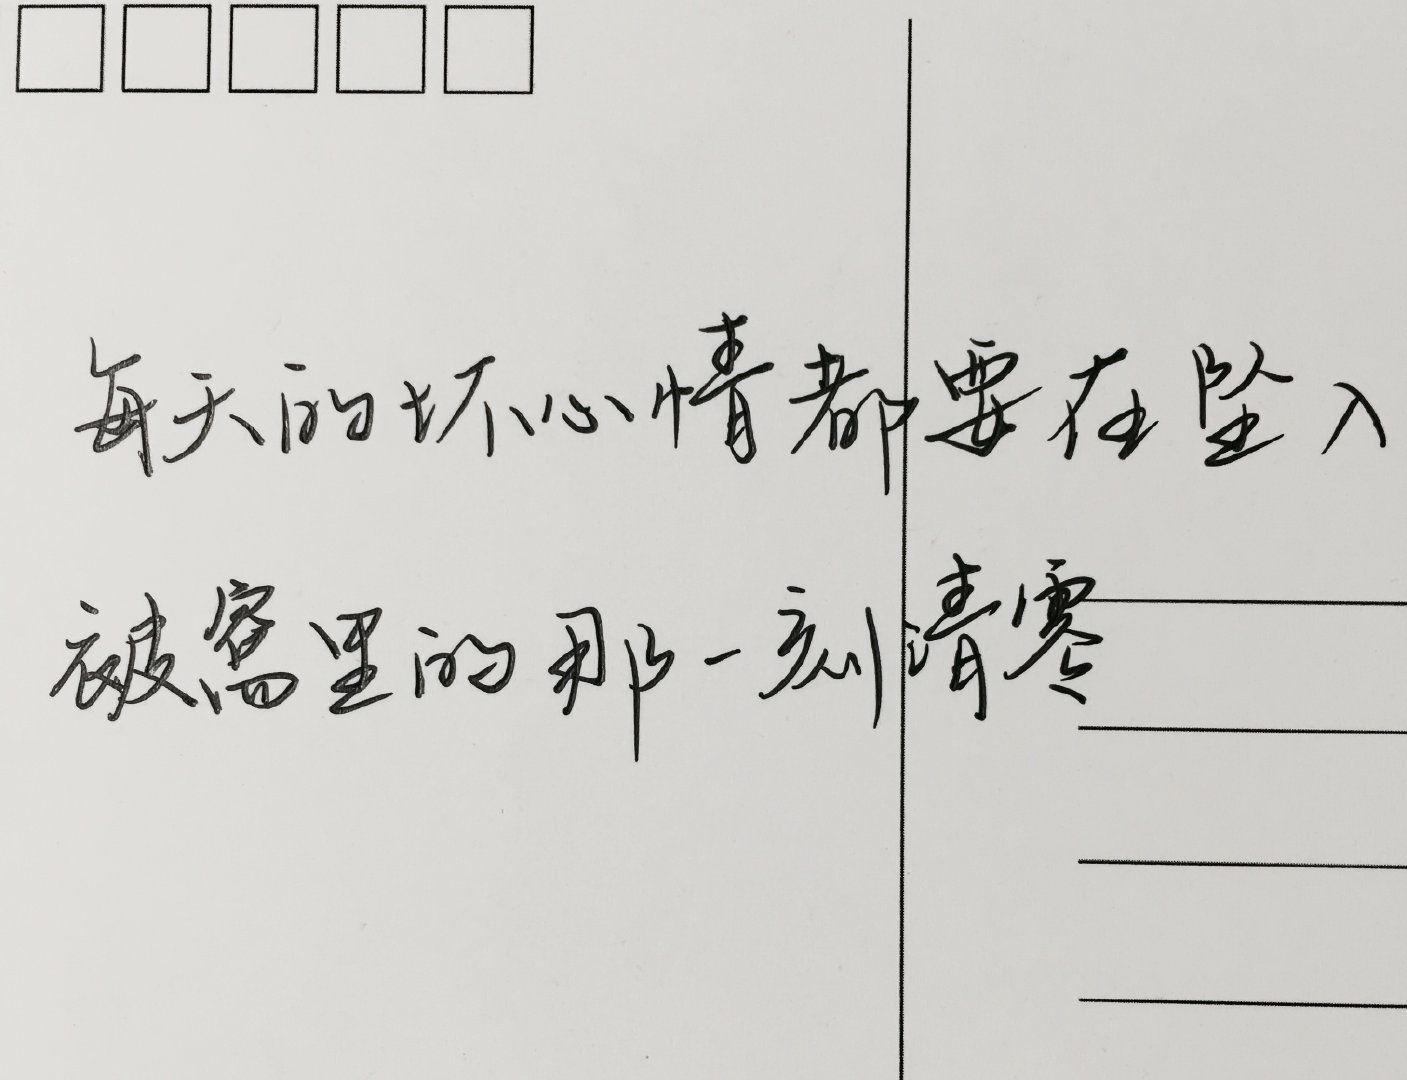 每天的坏心情都要在坠入
被窝里的那一刻清零